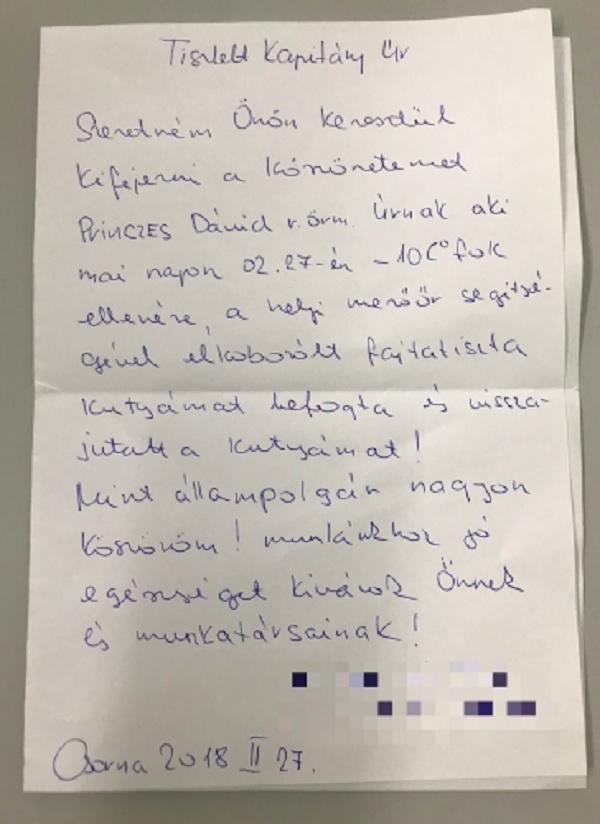 Tisztelt Kapitány Úr
Szeretném Önön keresztül
kifejezni a köszönetemet
PRINCZES Dávid r.őrm. Úrnak aki
mai napon 02.27-én -10 C° fok
ellenére, a helyi mezőőr segítsé-
gével elkóborolt fajtatiszta
kutyámat befogta és vissza-
jutatt a kutyámat!
Mint állampolgár nagyon
köszönöm! munkájukhoz jó
egészséget kivánok Önnek
és munkatársainak!
Csorna 2018 II 27.